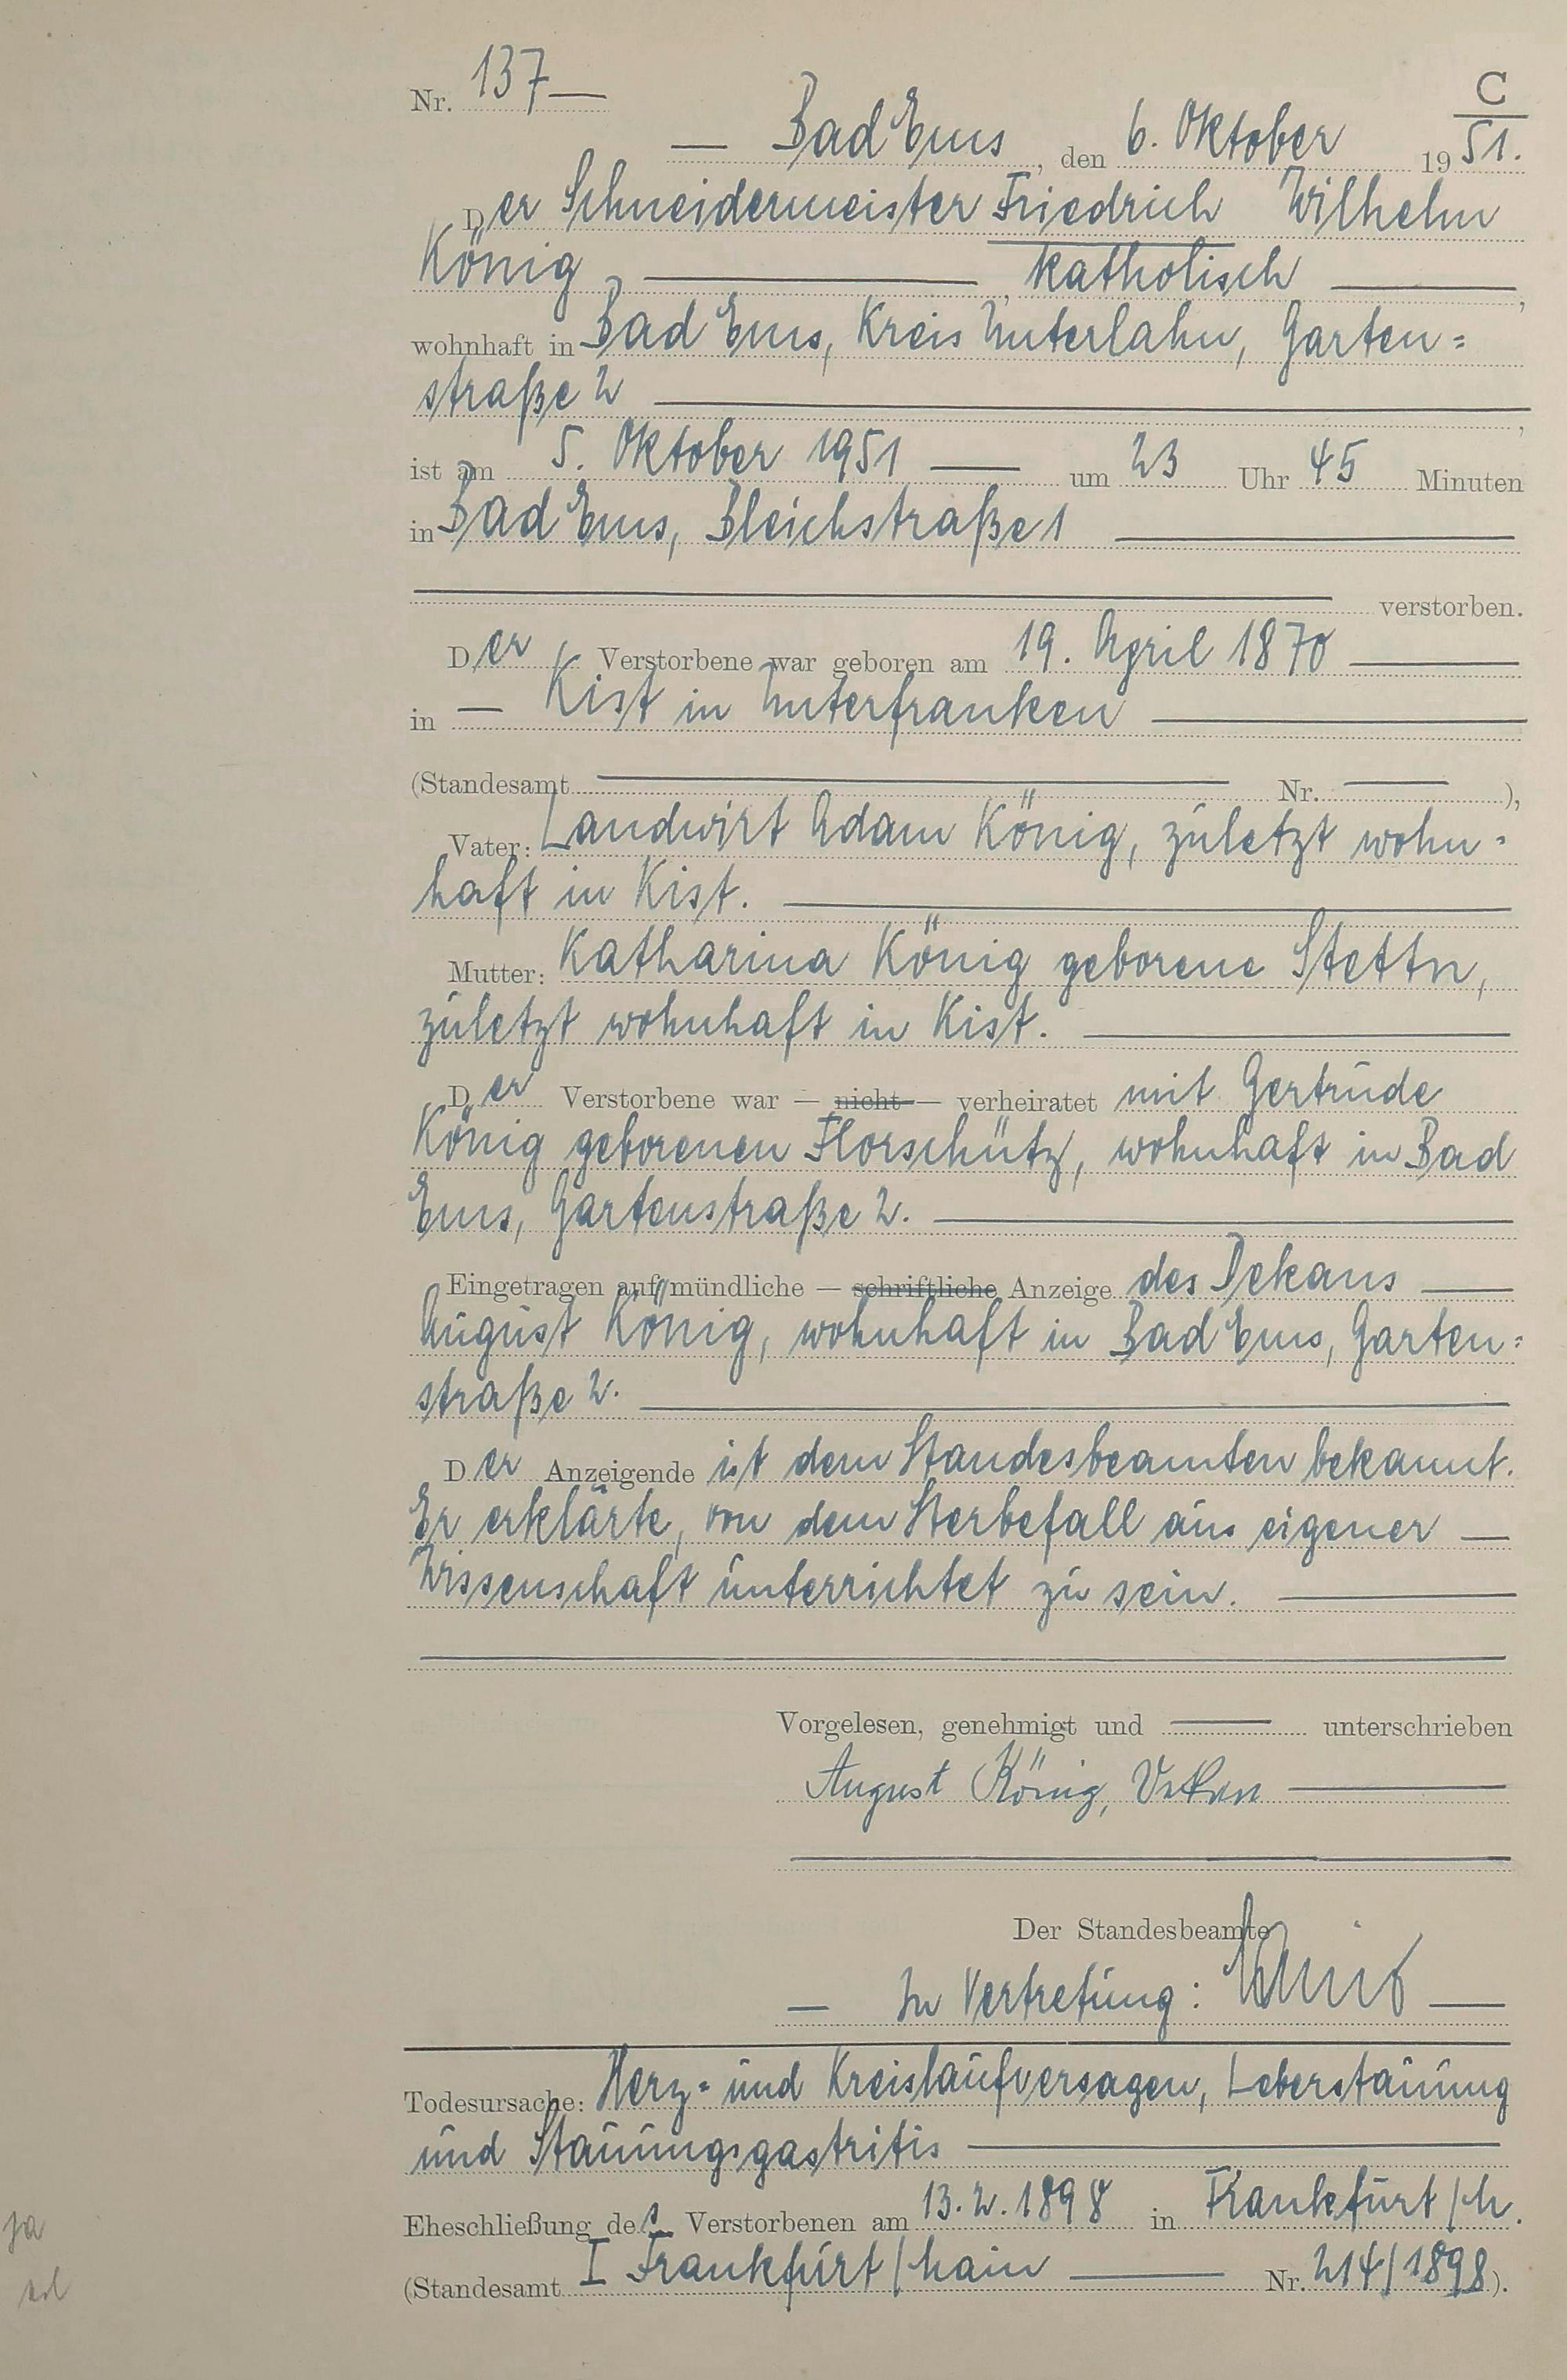 Nr. 137
C
Bad Ems, den 6. Oktober 1951.
Der Schneidermeister Friedrich Wilhelm
König, katholisch,
wohnhaft in Bad Ems, Kreis Unterlahn, Garten=
straße 2,
ist am 5. Oktober 1951 um 23 Uhr 45 Minuten
in Bad Ems, Bleichstraße 1
verstorben.
Der Verstorbene war geboren am 19. April 1870
in Kist in Unterfranken
(Standesamt Nr. ),
Vater: Landwirt Adam König, zuletzt wohn=
haft in Kist.
Mutter: Katharina König geborene Stettn,
zuletzt wohnhaft in Kist.
Der Verstorbene war — nicht — verheiratet mit Gertrude
König geborenen Florschütz, wohnhaft in Bad
Ems, Gartenstraße 2.
Eingetragen auf mündliche — schriftliche Anzeige des Dekans
August König, wohnhaft in Bad Ems, Garten=
straße 2.
Der Anzeigende ist dem Standesbeamten bekannt.
Er erklärte, von dem Sterbefall aus eigener
Wissenschaft unterrichtet zu sein.
Vorgelesen, genehmigt und unterschrieben
August König, Dekan
Der Standesbeamte
In Vertretung:
Todesursache: Herz= und Kreislaufversagen, Leberstauung
und Stauungsgastritis
Eheschließung des Verstorbenen am 13.2.1898 in Frankfurt/M.
(Standesamt I Frankfurt/Main Nr. 214/1898).
ja